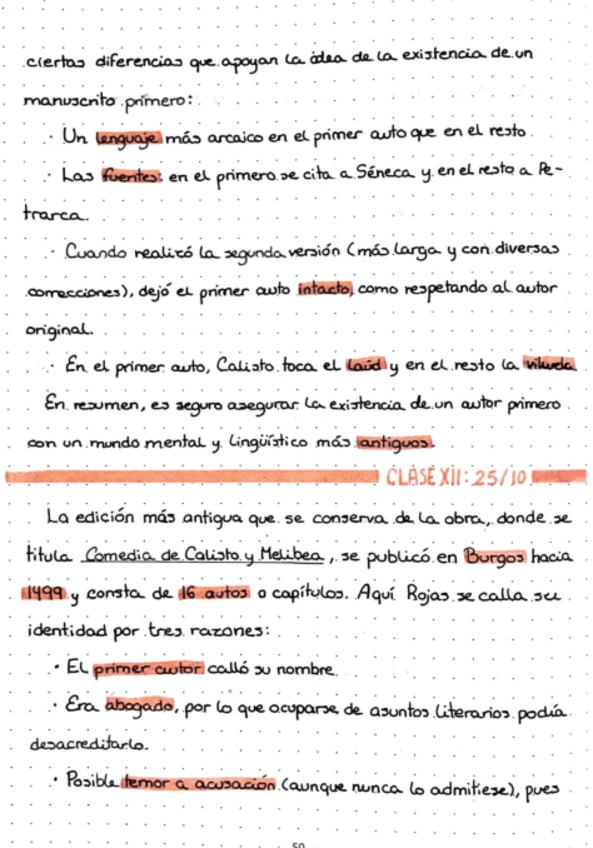 ciertas diferencias que apoyan la idea de la existencia de un
manuscrito primero:
· Un lenguaje más arcaico en el primer auto que en el resto.
· Las fuentes: en el primero se cita a Séneca y en el resto a Pe-
trarca.
· Cuando realizó la segunda versión (más larga y con diversas
correcciones), dejó el primer auto intacto, como respetando al autor
original.
· En el primer auto, Calisto toca el laúd y en el resto la vihuela.
En resumen, es seguro asegurar la existencia de un autor primero
con un mundo mental y lingüístico más antiguos.
CLASE XII: 25/10
La edición más antigua que se conserva de la obra, donde se
titula Comedia de Calisto y Melibea, se publicó en Burgos hacia
1499 y consta de 16 autos o capítulos. Aquí Rojas se calla su
identidad por tres razones:
· El primer autor calló su nombre.
· Era abogado, por lo que ocuparse de asuntos literarios podía
desacreditarlo.
· Posible temor a acusación (aunque nunca lo admitiese), pues
50